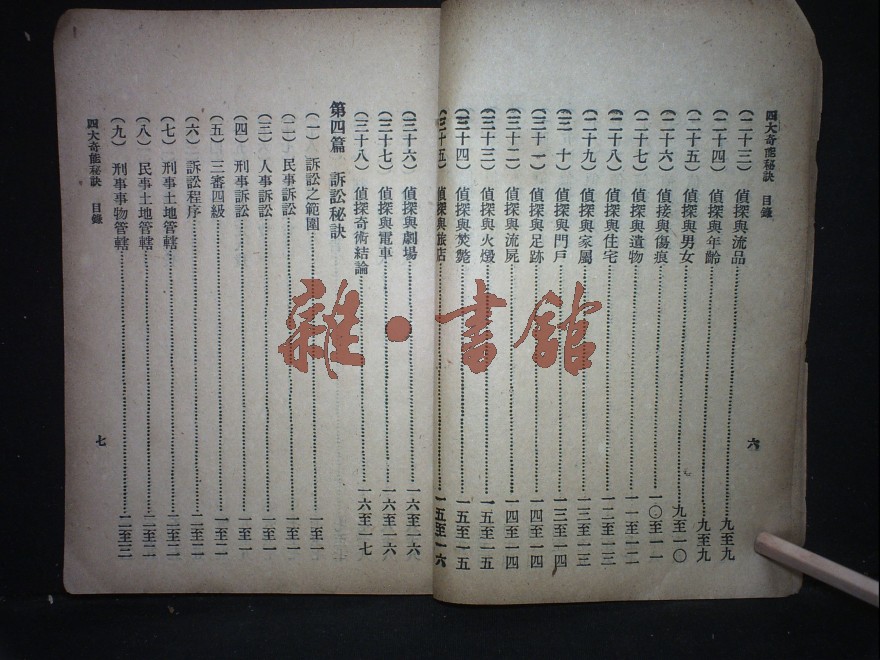 四大奇能秘訣 目錄
(二十三) 偵探與流品 九至九
(二十四) 偵探與年齡 九至九
(二十五) 偵探與男女 九至一〇
(二十六) 偵接與傷痕 一〇至一一
(二十七) 偵探與遺物 一一至一二
(二十八) 偵探與住宅 一二至一三
(二十九) 偵探與家屬 一三至一三
(三十) 偵探與門戶 一三至一四
(三十一) 偵探與足跡 一四至一四
(三十二) 偵探與流屍 一四至一四
(三十三) 偵探與火燬 一五至一五
(三十四) 偵探與焚斃 一五至一五
(三十五) 偵探與旅店 一五至一六
六
(三十六) 偵探與劇場 一六至一六
(三十七) 偵探與電車 一六至一六
(三十八) 偵探奇術結論 一六至一七
第四篇 訴訟秘訣
(一) 訴訟之範圍 一至一
(二) 民事訴訟 一至一
(三) 人事訴訟 一至一
(四) 刑事訴訟 一至一
(五) 三審四級 一至二
(六) 訴訟程序 二至二
(七) 刑事土地管轄 二至二
(八) 民事土地管轄 二至二
(九) 刑事事物管轄 二至三
四大奇能秘訣 目錄
七
雜·書館